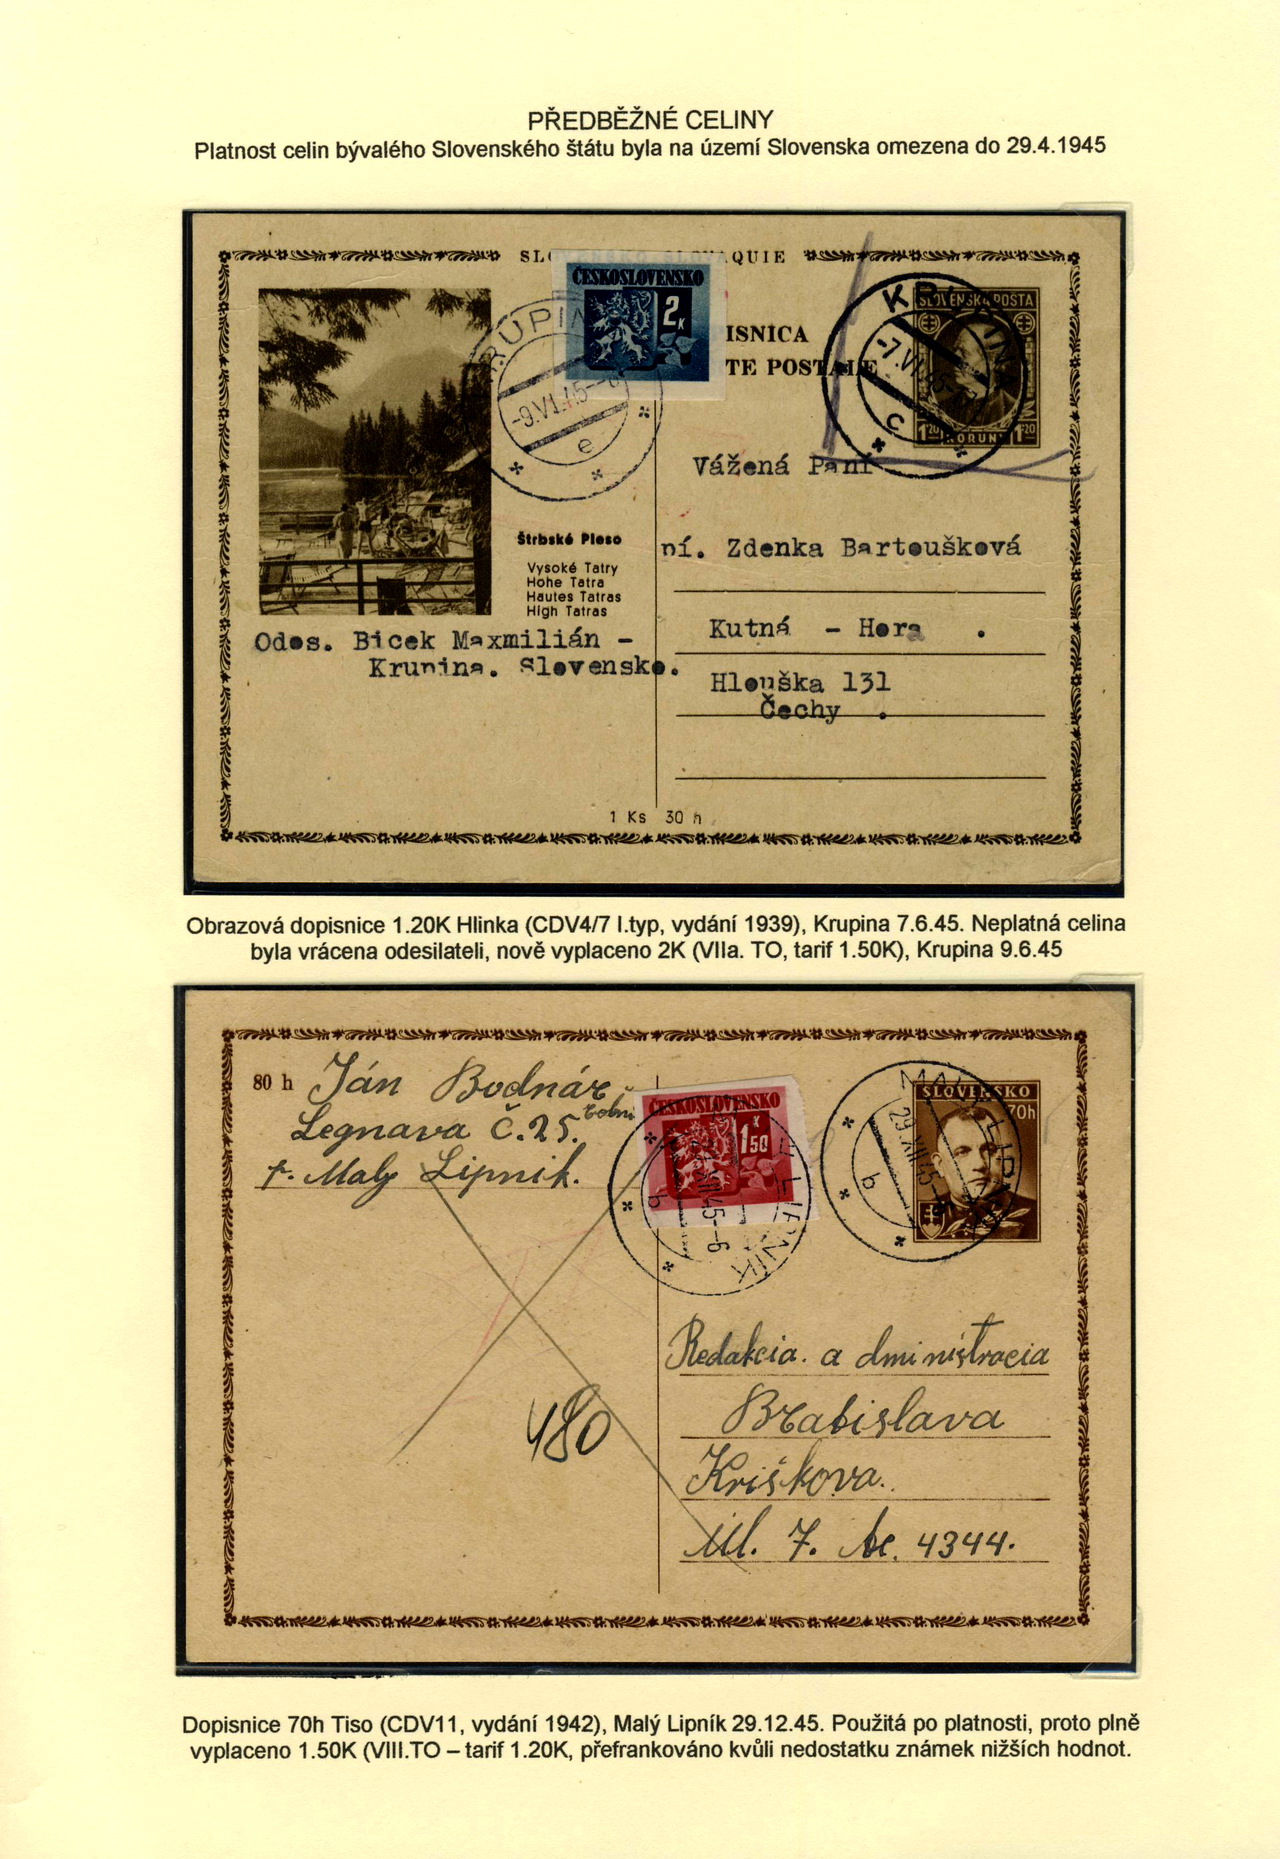 PŘEDBĚŽNÉ CELINY
Platnost celin bývalého Slovenského štátu byla na území Slovenska omezena do 29.4.1945
QUIE
ČESKOSLOVENSKO
2 K
KRUPINA
-9.VI.45--
e
ISNICA
TE POSTALE
SLOVENSKÁ POŠTA
1 20 KORUN 1 20
KRUPINA
-7.VI.45
c
Vážená Paní
pí. Zdenka Bartoušková
Kutná - Hora .
Hlouška 131
Čechy .
Štrbské Pleso
Vysoké Tatry
Hohe Tatra
Hautes Tatras
High Tatras
Odes. Bicek Maxmilián -
Krupina. Slovensko.
1 Ks 30 h
Obrazová dopisnice 1.20K Hlinka (CDV4/7 I.typ, vydání 1939), Krupina 7.6.45. Neplatná celina
byla vrácena odesilateli, nově vyplaceno 2K (VIIa. TO, tarif 1.50K), Krupina 9.6.45
80 h
Ján Bodnár,
Legnava č. 25.
p. Malý Lipník.
ČESKOSLOVENSKO
1 K 50
LIPNÍK
b
SLOVENSKO
70h
MALÝ LIPNÍK
29.XII.45
b
480
Redakcia. a dministracia
Bratislava
Kriškova.
Úl. 7. 4344.
Dopisnice 70h Tiso (CDV11, vydání 1942), Malý Lipník 29.12.45. Použitá po platnosti, proto plně
vyplaceno 1.50K (VIII.TO – tarif 1.20K, přefrankováno kvůli nedostatku známek nižších hodnot.